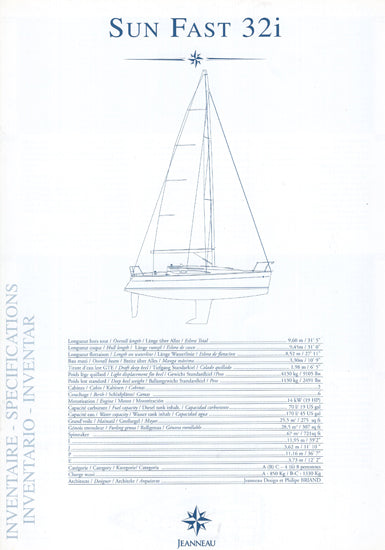 SUN FAST 32i
INVENTAIRE - SPECIFICATIONS
INVENTARIO - INVENTAR
Longueur hors tout / Overall length / Länge über Alles / Eslora Total 9.60 m / 31' 5"
Longueur coque / Hull length / Länge rumpf / Eslora de casco 9.45m / 31' 0"
Longueur flottaison / Length on waterline / Länge Wasserlinie / Eslora de flotacion 8.52 m / 27' 11"
Bau maxi / Overall beam / Breite über Alles / Manga máxima 3.30m / 10' 9"
Tirant d'eau lest GTE / Draft deep keel / Tiefgang Standardkiel / Calado quillado 1.98 m / 6' 5"
Poids lège quillard / Light displacement fin keel / Gewicht Standardkiel / Peso 4130 kg / 9105 lbs
Poids lest standard / Deep keel weight / Ballastgewicht Standardkiel / Peso 1130 kg / 2491 lbs
Cabines / Cabin / Kabinen / Cabinas
Couchage / Berth / Schlafplätze / Camas 6
Motorisation / Engine / Motor / Motorización 14 kW (19 HP)
Capacité carburant / Fuel capacity / Diesel tank inhalt. / Capacidad carburante 70 l/ 19 US gal
Capacité eau / Water capacity / Wasser tank inhalt / Capacidad agua 170 l/ 45 US gal
Grand voile / Mainsail / Großsegel / Mayor 25,5 m² / 275 sq ft
Génois enrouleur / Furling genoa / Rollgenua / Génova enrollable 28,5 m² / 307 sq ft
Spinnaker 67 m² / 721sq ft
I 11,95 m / 39'2"
J 3.62 m / 11' 10"
P 11,16 m / 36' 7"
E 3.73 m / 12' 2"
Catégorie / Category / Kategorie/ Categoria A (8) C – 4 (6) 8 personnes
Charge maxi A - 850 Kg / B-C - 1130 Kg
Architectes / Designer / Architekt / Arquitecto Jeanneau Design et Philippe BRIAND
JEANNEAU